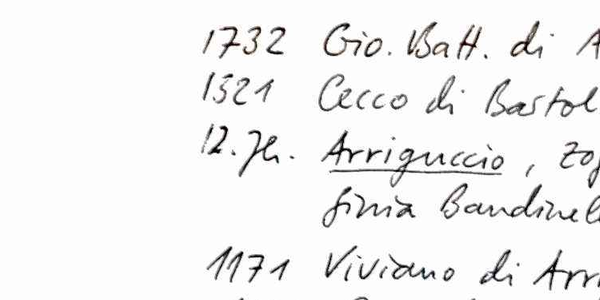 1732 Gio. Batt. di A
1321 Cecco di Bartol
12. Jh. Arriguccio, Zo
finia Bandinel
1171 Viviano di Arr